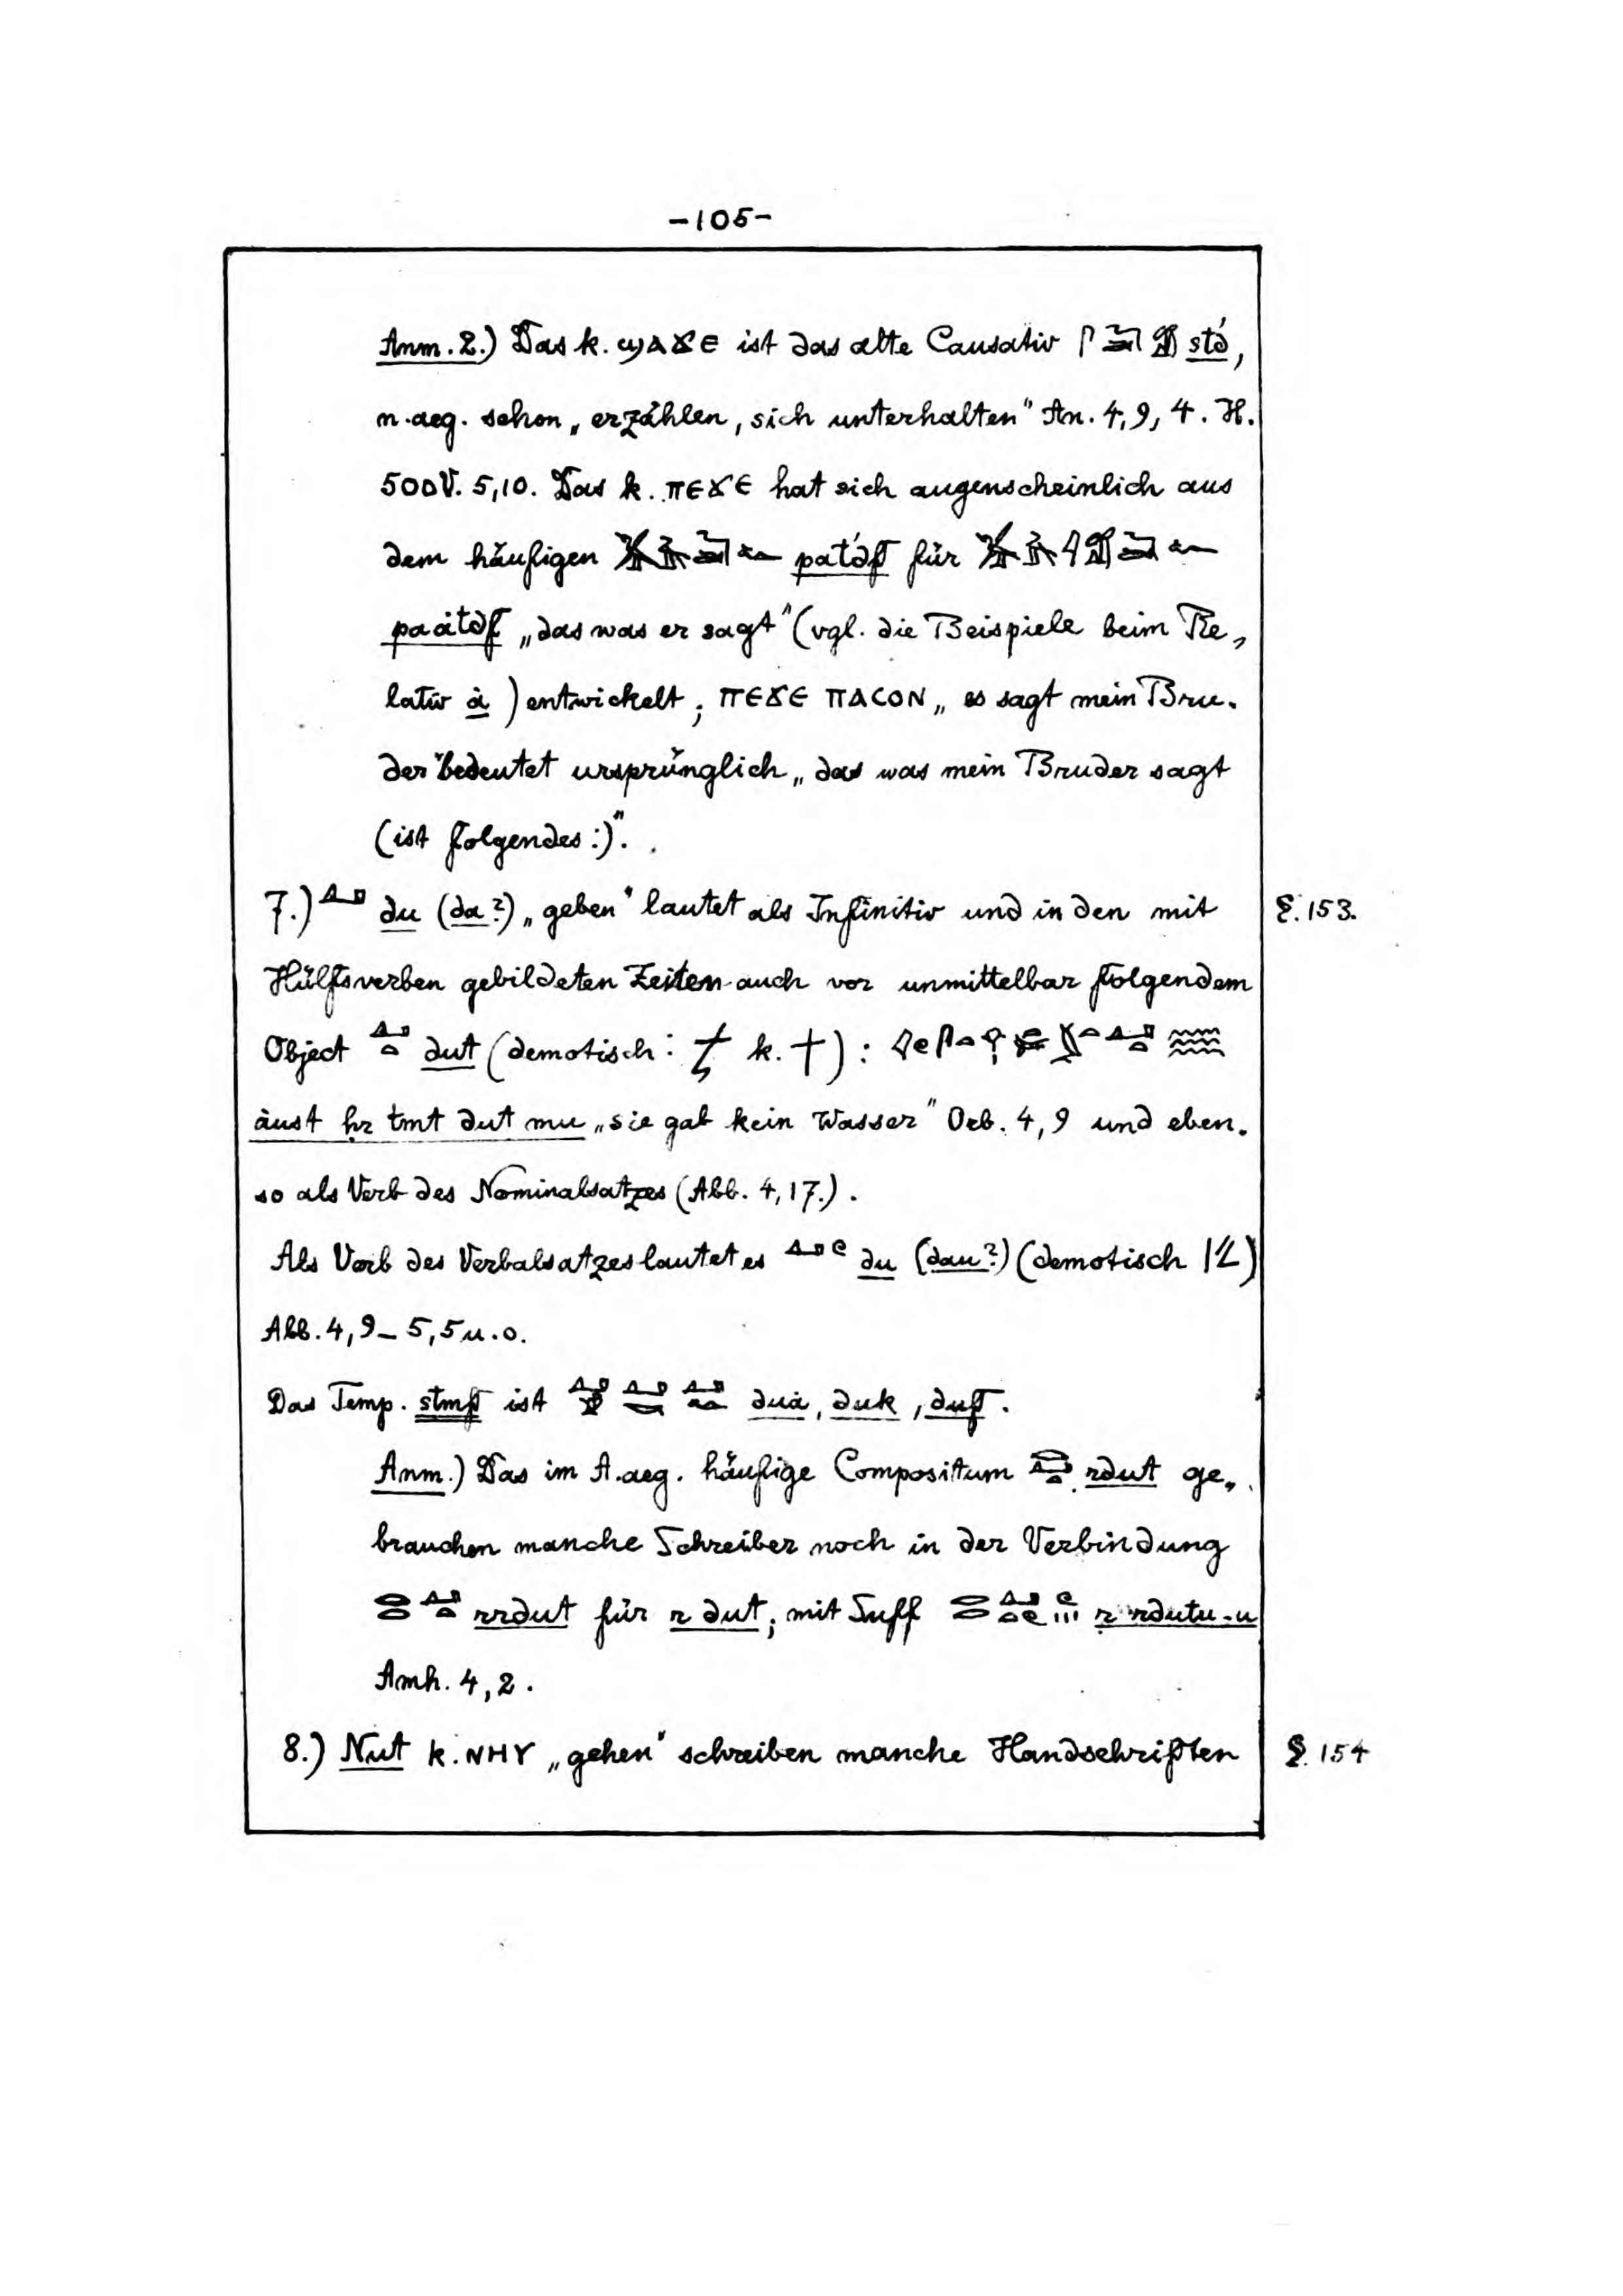 -105-
Anm. 2.) Das k. ϣⲁϫⲉ ist das alte Causativ st́d,
n. aeg. schon „erzählen, sich unterhalten" An. 4,9,4. H.
500 V. 5,10. Das k. ⲡⲉϫⲉ hat sich augenscheinlich aus
dem häufigen pat́df für
paȧt́df „das was er sagt" (vgl. die Beispiele beim Re„
lativ ȧ) entwickelt; ⲡⲉϫⲉ ⲡⲁⲥⲟⲛ „es sagt mein Bru-
der" bedeutet ursprünglich „das was mein Bruder sagt
(ist folgendes:)".
7.) du (da?) „geben" lautet als Infinitiv und in den mit §. 153.
Hülfsverben gebildeten Zeiten auch vor unmittelbar folgendem
Object dut (demotisch: k. ϯ):
äust ḥr tmt dut mu „sie gab kein Wasser" Orb. 4,9 und eben-
so als Verb des Nominalsatzes (Abb. 4,17.).
Als Verb des Verbalsatzes lautet es du (dau?) (demotisch )
Abb. 4,9 – 5,5 u. o.
Das Temp. stmf ist duȧ, duk, duf.
Anm.) Das im A. aeg. häufige Compositum rdut ge„
brauchen manche Schreiber noch in der Verbindung
rrdut für r dut; mit Suff r rdutu-u
Amh. 4,2.
8.) Nut k. ⲛⲏⲩ „gehen" schreiben manche Handschriften §. 154